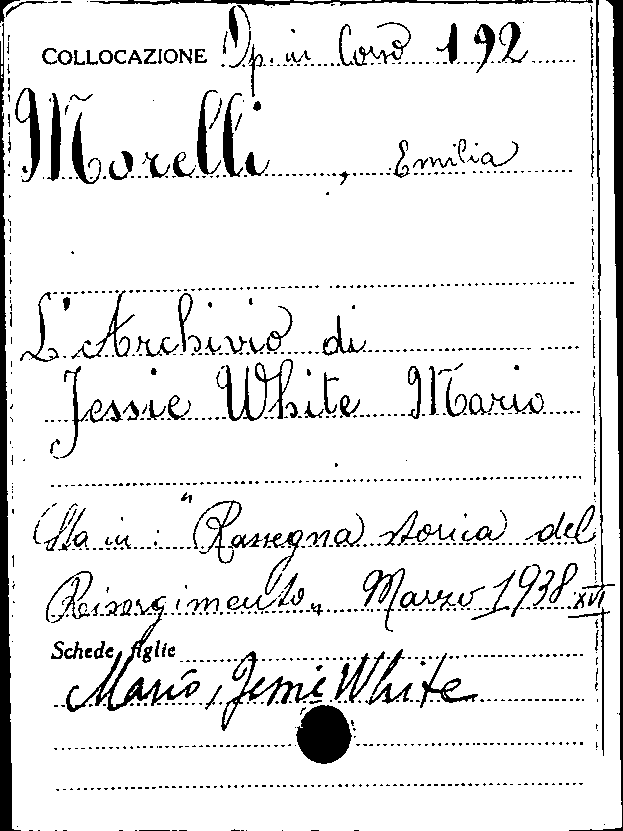 COLLOCAZIONE Op. in Corso 192
Morelli, Emilia
L'Archivio di
Jessie White Mario
Sta in: "Rassegna storica del
Risorgimento„ Marzo 1938 XVI
Schede figlie
Mario, Jessie White